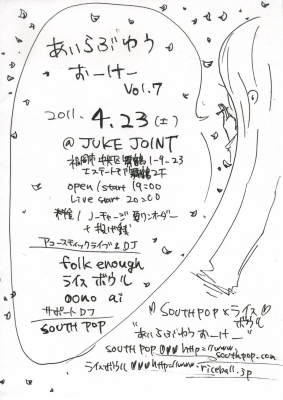 あいらぶゆう
おーけー
Vol.7
2011. 4.23(土)
@ JUKE JOINT
福岡市中央区舞鶴1-9-23
エステートモア舞鶴2F
open/start 19:00
Live start 20:00
料金/ノーチャージ要ワンオーダー
+投げ銭
アコースティックライブ&DJ
folk enough
ライスボウル
oono ai
サポートDJ
SOUTH POP
♡SOUTH POP×ライス♡
ボウル
"あいらぶゆうおーけー"
SOUTH POP http://www.
southpop.com
ライスボウル http://www.
riceball.jp